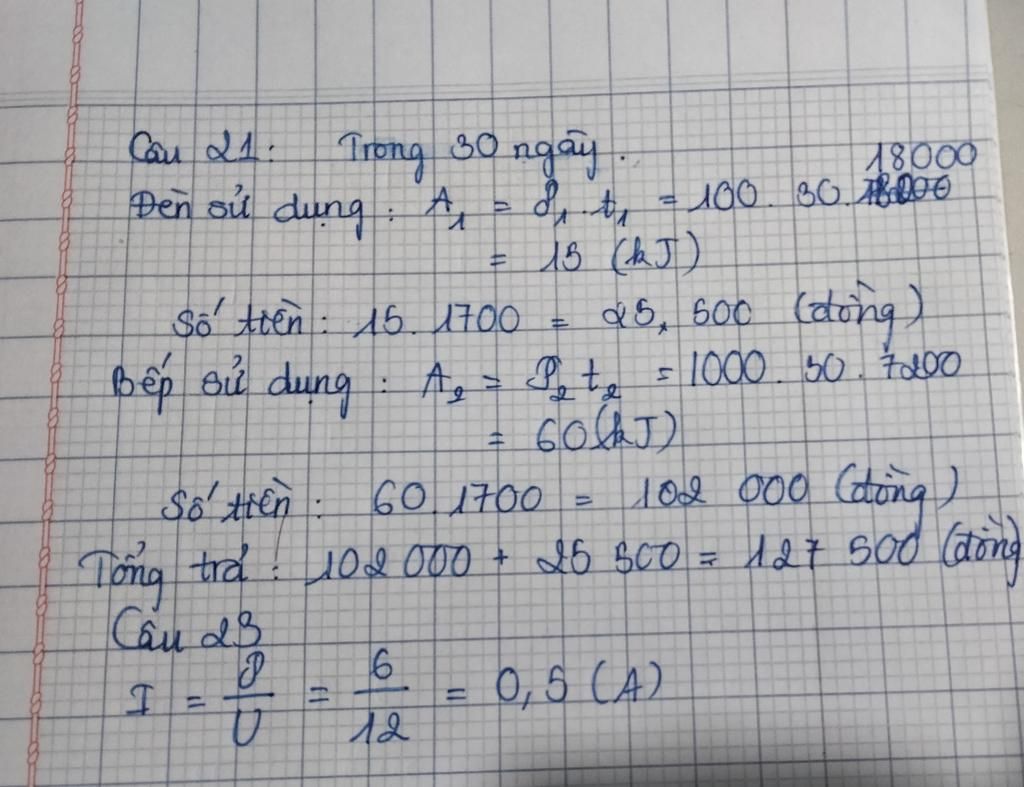 Câu 21: Trong 30 ngày.
18000
Đèn sử dụng: A₁ = P₁.t₁ = 100. 30.
= 15 (kJ)
Số tiền: 15.1700 = 25,500 (đồng)
Bếp sử dụng: A₂ = P₂t₂ = 1000. 30. 7200
= 60(kJ)
Số tiền: 60.1700 = 102 000 (đồng)
Tổng trả: 102000 + 25 500 = 127 500 (đồng)
Câu 23
I = P/U = 6/12 = 0,5 (A)